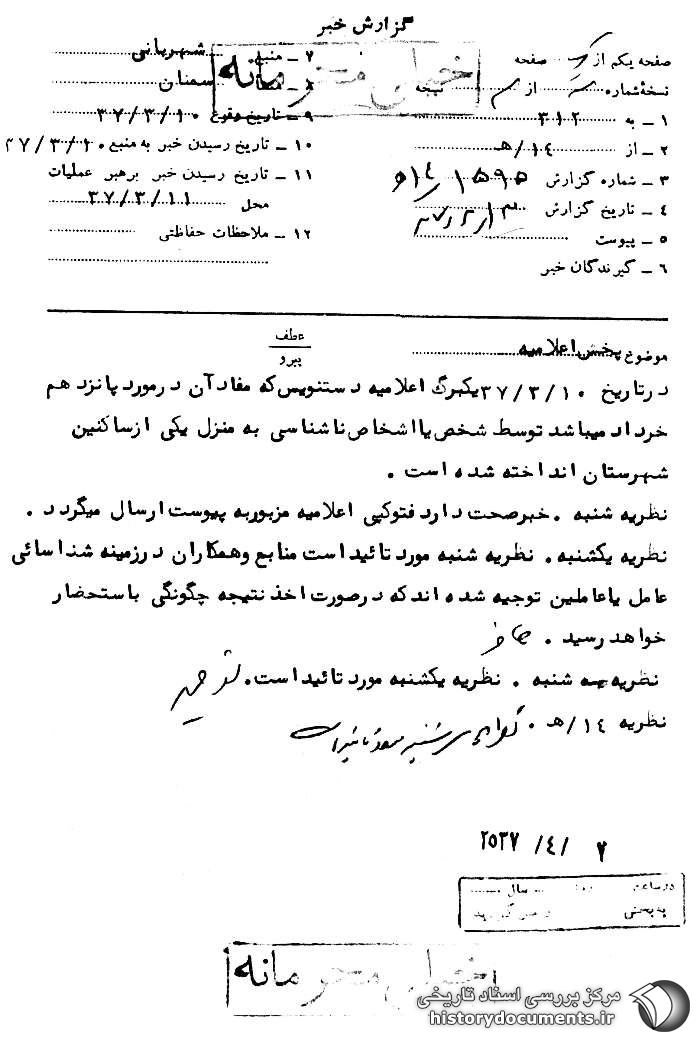 گزارش خبر
صفحه یکم از یک صفحه
نسخه شماره از نسخه
۱ ــ به ۳۱۲
۲ ــ از ۱۴/هـ
۳ ــ شماره گزارش ۱۵۹۵
۴ ــ تاریخ گزارش
۵ ــ پیوست
۶ ــ گیرندگان خبر
۷ ــ منبع شهربانی
۸ ــ سمنان
خیلی محرمانه
۹ ــ تاریخ وقوع ۳۷/۳/۱۰
۱۰ ــ تاریخ رسیدن خبر به منبع ۳۷/۳/۱۰
۱۱ ــ تاریخ رسیدن خبر برهبر عملیات
محل ۳۷/۳/۱۱
۱۲ ــ ملاحظات حفاظتی
موضوع پخش اعلامیه
عطف
پیرو
درتاریخ ۳۷/۳/۱۰ یکبرگ اعلامیه دستنویس که مفاد آن درمورد پانزدهم
خرداد میباشد توسط شخص یا اشخاص ناشناسی به منزل یکی ازساکنین
شهرستان انداخته شده است .
نظریه شنبه . خبرصحت دارد فتوکپی اعلامیه مزبوربه پیوست ارسال میگردد .
نظریه یکشنبه . نظریه شنبه مورد تائید است منابع وهمکاران درزمینه شناسائی
عامل یاعاملین توجیه شده اند که درصورت اخذ نتیجه چگونگی باستحضار
خواهد رسید .
نظریه سه شنبه . نظریه یکشنبه مورد تائید است .
نظریه ۱۴/هـ .
۲۵۳۷/۴/۷
در ساعت سال
خیلی محرمانه
مرکز بررسی اسناد تاریخی
historydocuments.ir